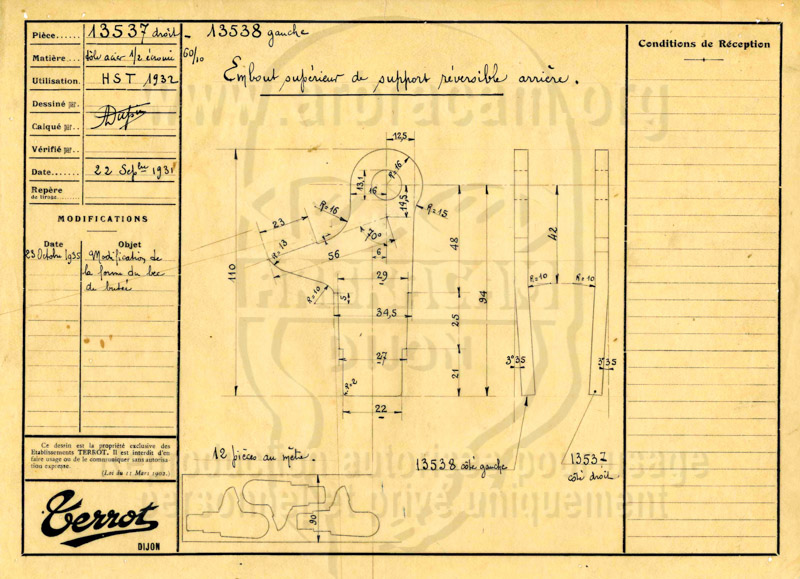 Pièce...... 13537 droit - 13538 gauche
Matière... tôle acier 1/2 écroui 60/10
Utilisation. HST 1932
Embout supérieur de support réversible arrière.
Dessiné par.
Calqué par..
Vérifié par..
Date....... 22 Sepbre 1931
Repère
de tirage
MODIFICATIONS
Date Objet
23 Octobre 1935 Modification de
la forme du bec
de butée
Conditions de Réception
www.amoracam.org
AMORACAM
DIJON
12,5
R=16
13,1
16
14,5
R=15
R=16
23
R=13
7
70°
6
56
48
42
110
R=10
5
29
34,5
94
25
R=10
R=10
27
21
3°35
3°35
R=2
22
12 pièces au mètre.
13538 côté gauche
13537
côté droit
90
usage
personnel et privé uniquement
Ce dessin est la propriété exclusive des
Etablissements TERROT. Il est interdit d'en
faire usage ou de le communiquer sans autorisa-
tion expresse.
(Loi du 11 Mars 1902.)
Terrot
DIJON